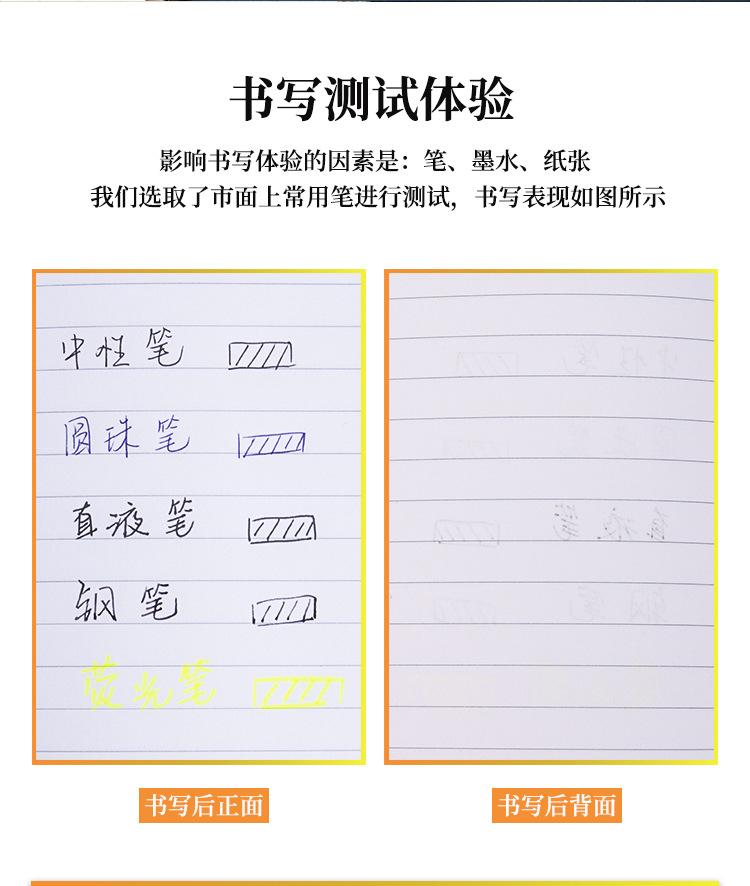 书写测试体验
影响书写体验的因素是：笔、墨水、纸张
我们选取了市面上常用笔进行测试，书写表现如图所示
中性笔
圆珠笔
直液笔
钢笔
荧光笔
书写后正面
书写后背面